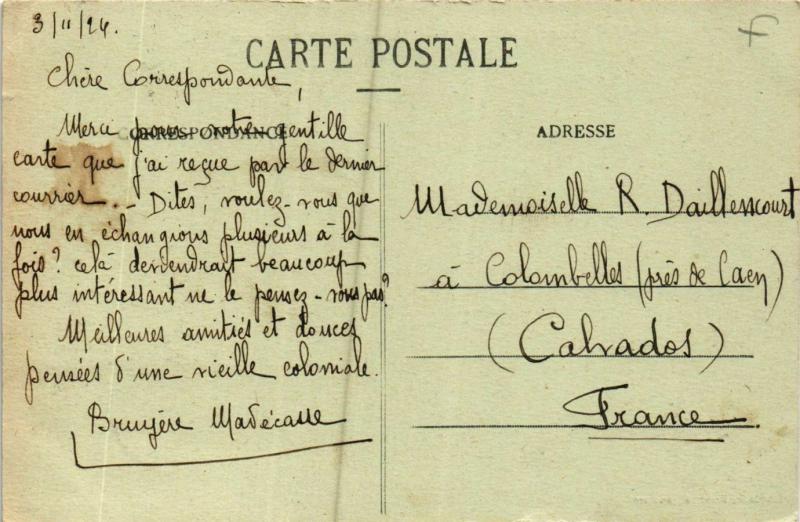 3/11/24.
F
CARTE POSTALE
Chère Correspondante,
CORRESPONDANCE
Merci pour votre gentille
carte que j'ai reçue par le dernier
courrier. - Dites, voulez-vous que
nous en échangions plusieurs à la
fois? celà deviendrait beaucoup
plus intéressant ne le pensez-vous pas?
Meilleures amitiés et douces
pensées d'une vieille coloniale.
Bruyère Madécasse
ADRESSE
Mademoiselle R. Daillencourt
à Colombelles (près de Caen)
(Calvados)
France